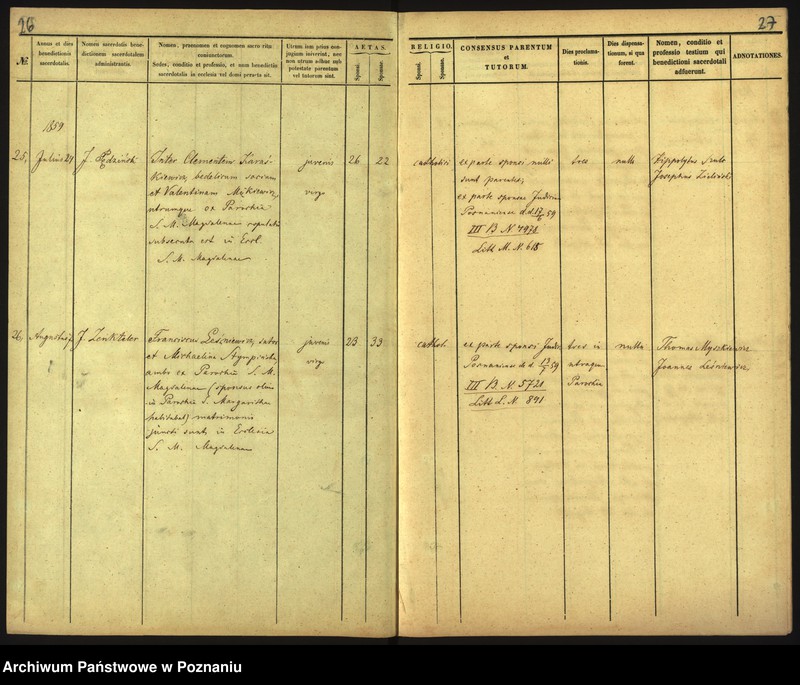 26
27
№
Annus et dies benedictionis sacerdotalis.
Nomen sacerdotis benedictionem sacerdotalem administrantis
Nomen, praenomen et cognomen sacro ritu coniunctorum.
Sedes, conditio et professio, et num benedictio sacerdotalis in ecclesia vel domi peracta sit.
Utrum iam prius conjugium iniverint, nec non utrum adhuc sub potestate parentum vel tutorum sint.
AETAS.
Sponsi.
Sponsae.
RELIGIO.
Sponsi.
Sponsae.
CONSENSUS PARENTUM
et
TUTORUM.
Dies proclamationis.
Dies dispensationum, si qua forent.
Nomen, conditio et professio testium qui benedictioni sacerdotali adfuerunt.
ADNOTATIONES.
1859
25,
Julius 24
Inter Clementem
bedelorum
et Valentinam
utrumque ex Parochia
S. M. Magdalenae copulatio
subsecuta est in Eccl.
S. M. Magdalenae
juvenis
virgo
26
22
catholici
ex parte sponsi nulli
sunt parentes,
ex parte sponsae Judicii
Posnaniensis d.d. 17/6 59
III B N 4978
Litt M. N. 615
tres
nulla
Hippolytus
Josephus
26,
Augustus
J. Zenkteler
Franciscus Leśniewicz, sutor
et Michaelina
ambo ex Parochia S. M.
Magdalenae (sponsus olim
in Parochia S. Margarethae
habitabat) matrimonio
juncti sunt in Ecclesia
S. M. Magdalenae
juvenis
virgo
23
33
cathol.
ex parte sponsi Judic
Posnaniensis d.d. 13/7 59
III B. N 5721
Litt L. N. 841
tres in
utraque
Parochia
nulla
Thomas Myszkiewicz
Joannes Leśniewicz
Archiwum Państwowe w Poznaniu